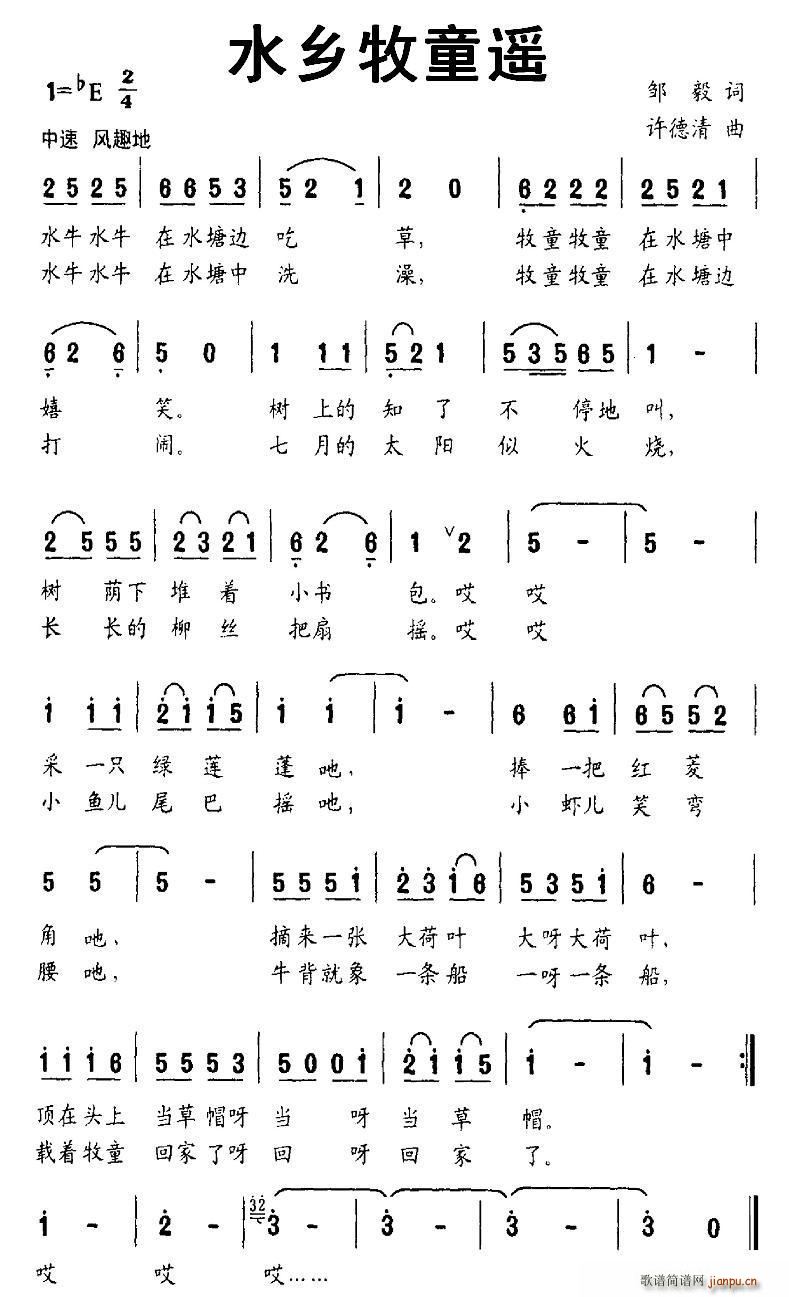 水乡牧童遥
1=♭E 2/4
邹 毅 词
中速 风趣地
许德清 曲
2 5 2 5 | 6 6 5 3 | 5 2 1 | 2 0 | 6 2 2 2 | 2 5 2 1 |
水牛水牛 在水塘边 吃 草, 牧童牧童 在水塘中
水牛水牛 在水塘中 洗 澡, 牧童牧童 在水塘边
6 2 6 | 5 0 | 1 1 1 | 5 2 1 | 5 3 5 6 5 | 1 - |
嬉 笑。 树 上的 知 了 不 停地 叫,
打 闹。 七 月的 太 阳 似 火 烧,
2 5 5 5 | 2 3 2 1 | 6 2 6 | 1 ∨ 2 | 5 - | 5 - |
树 荫下 堆 着 小书 包。哎 哎
长 长的 柳 丝 把扇 摇。哎 哎
1 1 1 | 2 1 1 5 | 1 1 | 1 - | 6 6 1 | 6 5 5 2 |
采 一只 绿 莲 蓬 吔, 捧 一把 红 菱
小 鱼儿 尾 巴 摇 吔, 小 虾儿 笑 弯
5 5 | 5 - | 5 5 5 1 | 2 3 1 6 | 5 3 5 1 | 6 - |
角 吔, 摘来一张 大荷叶 大呀大荷 叶,
腰 吔, 牛背就象 一条船 一呀一条 船,
1 1 1 6 | 5 5 5 3 | 5 0 0 1 | 2 1 1 5 | 1 - | 1 - :‖
顶在头上 当草帽呀 当 呀 当 草 帽。
载着牧童 回家了呀 回 呀 回 家 了。
1 - | 2 - | 32 3 - | 3 - | 3 - | 3 0 ‖
哎 哎 哎……
歌谱简谱网 jianpu.cn